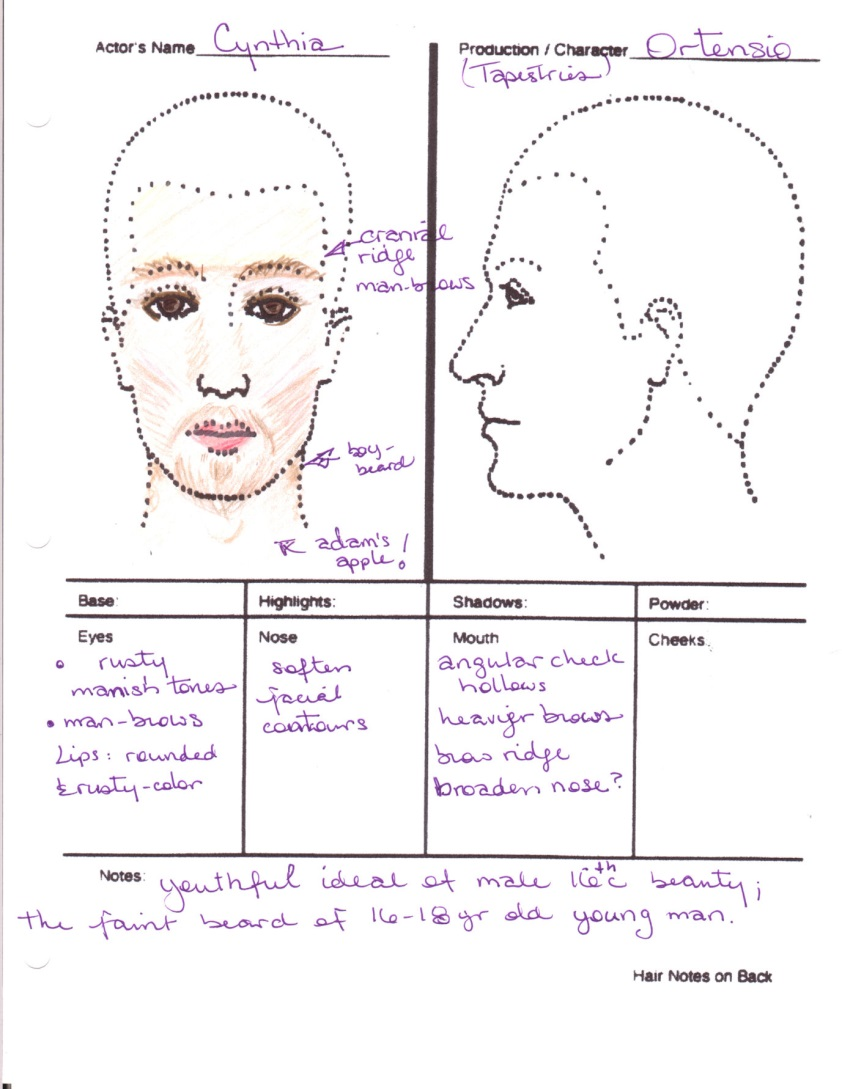 Actor's Name Cynthia
Production / Character Ortensio
(Tapestries)
cranial
ridge
man-brows
boy-
beard
adam's
apple!
Base: Highlights: Shadows: Powder:
Eyes Nose Mouth Cheeks.
• rusty
manish tones
• man-brows
Lips: rounded
& rusty-color
soften
facial
contours
angular check
hollows
heavier brows
brow ridge
broaden nose?
Notes: youthful ideal of male 16th c beauty;
the faint beard of 16-18 yr old young man.
Hair Notes on Back